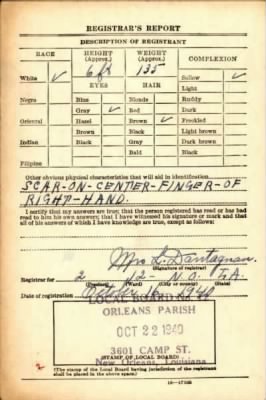 REGISTRAR'S REPORT
DESCRIPTION OF REGISTRANT
RACE HEIGHT (Approx.) WEIGHT (Approx.) COMPLEXION
White ✓ 6 ft 135 Sallow ✓
EYES HAIR Light
Negro Blue Blonde Ruddy
Gray ✓ Red Dark
Oriental Hazel Brown ✓ Freckled
Brown Black Light brown
Indian Black Gray Dark brown
Bald Black
Filipino
Other obvious physical characteristics that will aid in identification
SCAR-ON-CENTER-FINGER-OF
RIGHT-HAND.
I certify that my answers are true; that the person registered has read or has had
read to him his own answers; that I have witnessed his signature or mark and that
all of his answers of which I have knowledge are true, except as follows:
Mrs L. Dantagnan
(Signature of registrar)
Registrar for 2 12 N.O. LA.
(City or county) (State)
Date of registration Oct 16 1940
LOCAL BOARD
ORLEANS PARISH
OCT 22 1940
3601 CAMP ST.
New Orleans, Louisiana
(STAMP OF LOCAL BOARD)
(The stamp of the Local Board having jurisdiction of the registrant
shall be placed in the above space.)